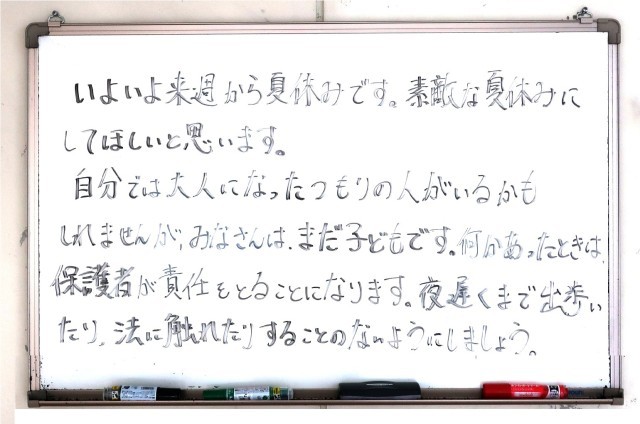 いよいよ来週から夏休みです。素敵な夏休みに
してほしいと思います。
自分では大人になったつもりの人がいるかも
しれませんが、みなさんは、まだ子どもです。何かあったときは、
保護者が責任をとることになります。夜遅くまで出歩い
たり、法に触れたりすることのないようにしましょう。